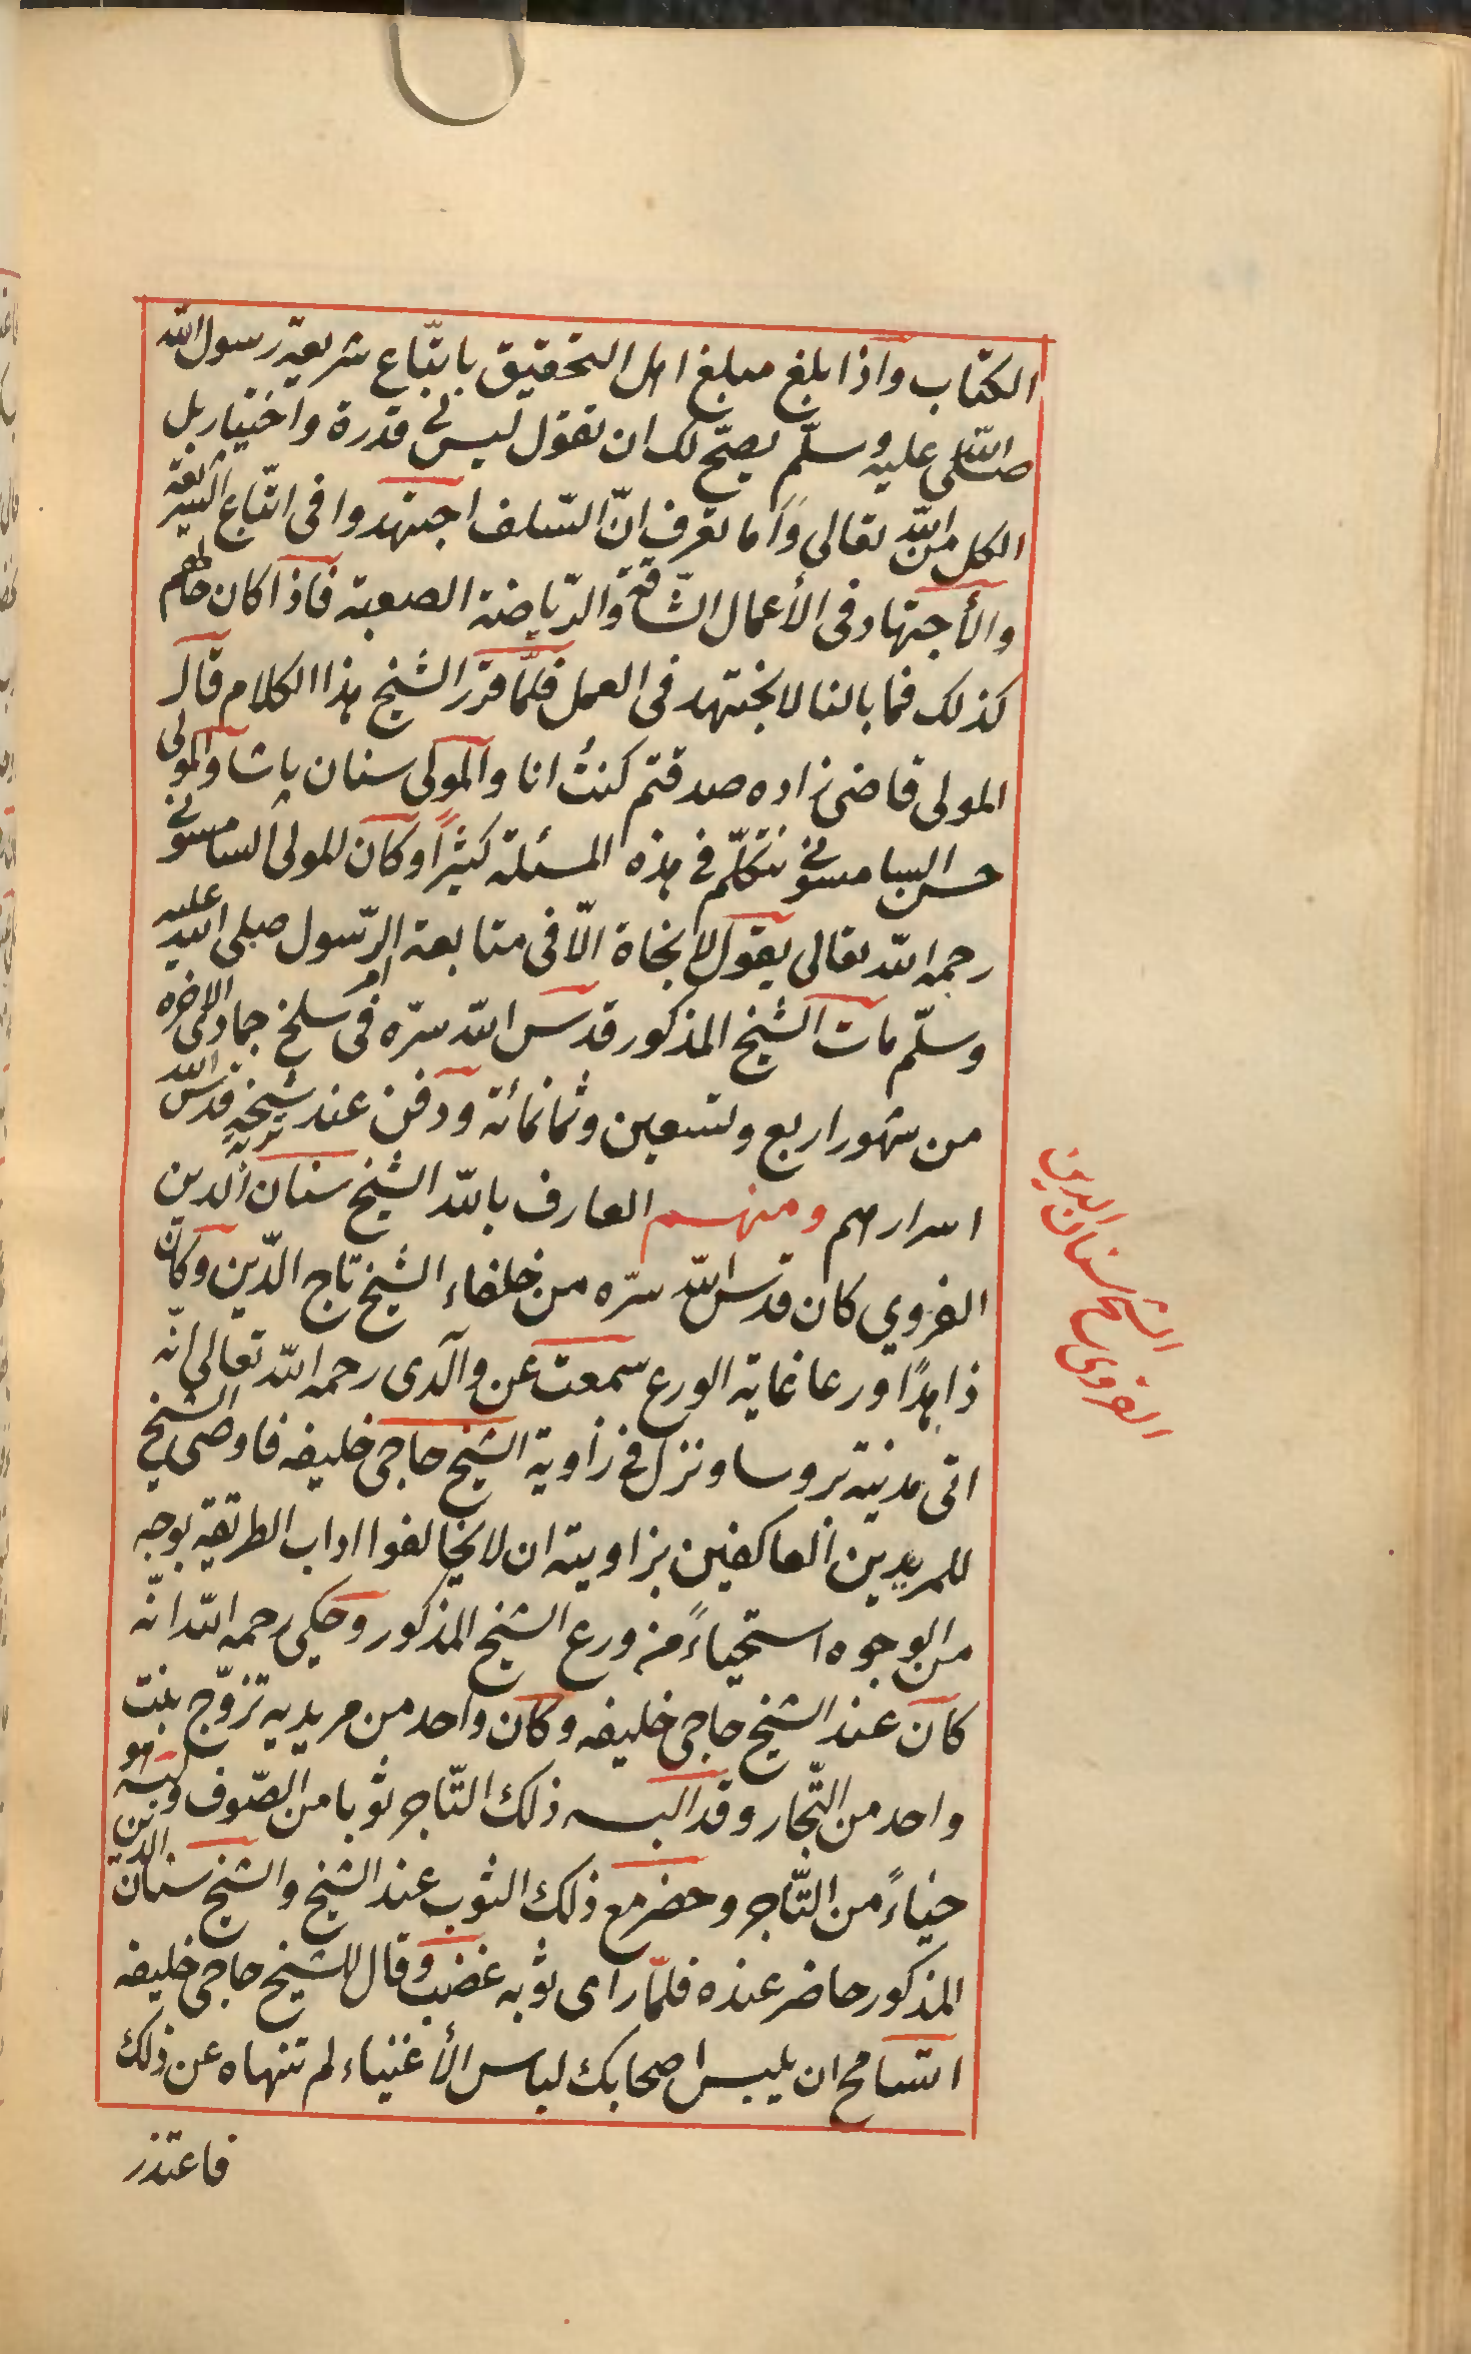 الكتاب واذا بلغ مبلغ اهل التحقيق باتباع شريعة رسول الله
صلى الله عليه وسلّم يصحّ لك ان تقول ليس لى قدرة واختيار بل
الكل من الله تعالى واما تعرف انّ السّلف اجتهدوا فى اتّباع الشريعة
والأجتهاد فى الأعمال الشّاقة والرّياضة الصعبة فاذا كان حالهم
كذلك فما بالنا لا نجتهد فى العمل فلمّا قرّر الشيخ هذا الكلام قال
المولى قاضى زاده صدقتم كنتُ انا والمولى سنان پاشا والمولى
حسن السامسونى نتكلّم فى هذه المسئلة كثيرًا وكان للمولى السامسونى
رحمه الله تعالى يقول لا نجاة الّا فى متابعة الرّسول صلى الله عليه
وسلّم مات الشيخ المذكور قدّس الله سرّه فى سلخ جمادى الاخره
من شهور اربع وتسعين وثمانمائة ودفن عند شيخه قدّس الله
اسرارهم ومنهم العارف بالله الشيخ سنان الدين
الفروي كان قدّس الله سرّه من خلفاء الشيخ تاج الدّين وكان
ذاهدًا ورعا غاية الورع سمعت عن والدى رحمه الله تعالى انّه
اتى مدينة بروسا ونزل فى زاوية الشيخ حاجى خليفه فاوصى الشيخ
للمريدين العاكفين بزاويته ان لا يخالفوا اداب الطريقة بوجه
من الوجوه استحياءً من ورع الشيخ المذكور وحكى رحمه الله انّه
كان عند الشيخ حاجى خليفه وكان واحد من مريديه تزوّج بنت
واحد من التّجار وقد البسه ذلك التّاجر ثوبا من الصّوف ولبسه هو
حياءً من التّاجر وحضر مع ذلك الثوب عند الشيخ والشيخ سنان الدين
المذكور حاضر عنده فلمّا راى ثوبه غضب وقال للشيخ حاجى خليفه
اتسامح ان يلبس اصحابك لباس الأغنياء لم تنهاه عن ذلك
فاعتذر
الشيخ سنان الدين
الفروى